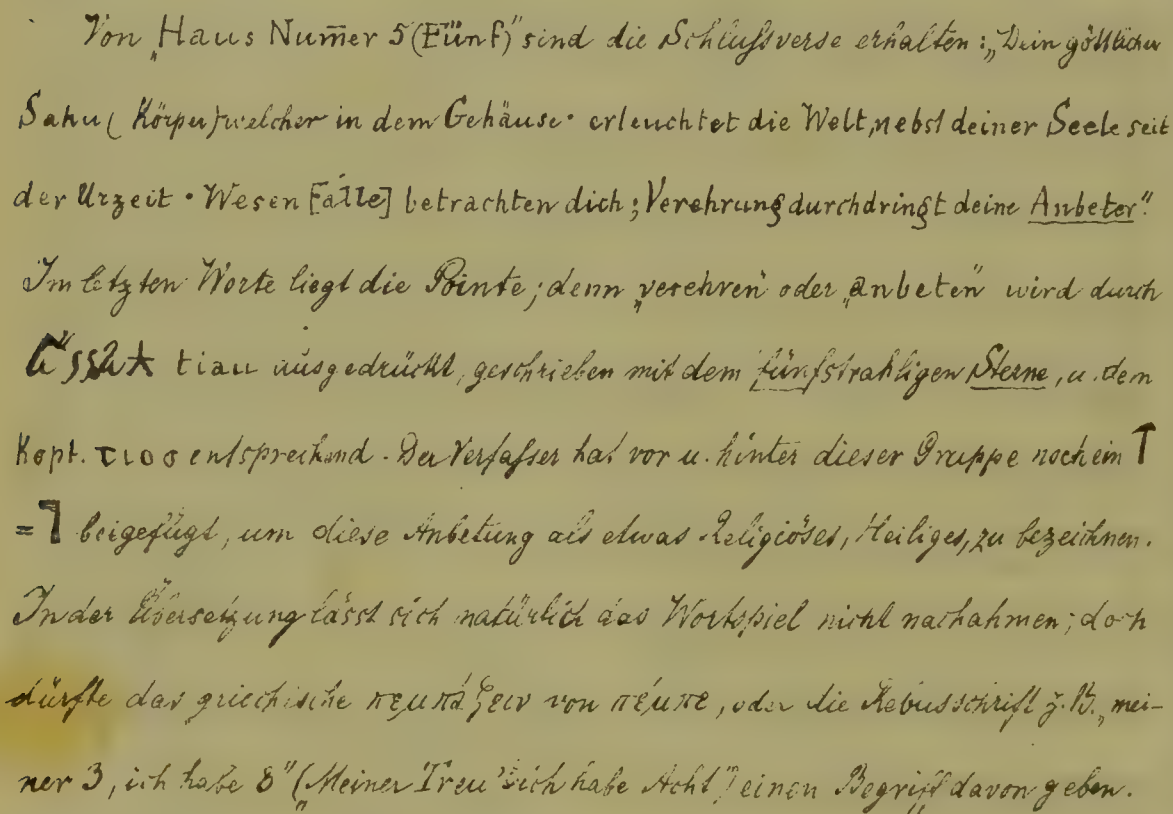 Von „Haus Num̅er 5 (Fünf)" sind die Schlußverse erhalten: „Dein göttlicher
Sahu (Körper) welcher in dem Gehäuse · erleuchtet die Welt, nebst deiner Seele seit
der Urzeit · Wesen [alle] betrachten dich; Verehrung durchdringt deine Anbeter".
Im letzten Worte liegt die Pointe; denn „verehren" oder „anbeten" wird durch
tiau ausgedrückt, geschrieben mit dem fünfstrahligen Sterne, u. dem
Kopt. ⲧⲓⲟⲟ entsprechend. Der Verfasser hat vor u. hinter dieser Gruppe noch ein
= beigefügt, um diese Anbetung als etwas Religiöses, Heiliges, zu bezeichnen.
In der Übersetzung lässt sich natürlich das Wortspiel nicht nachahmen; doch
dürfte das griechische πεμπάζειν von πέμπε, oder die Rebusschrift z. B. „mei-
ner 3, ich habe 8" („Meiner Treu' ich habe Acht") einen Begriff davon geben.